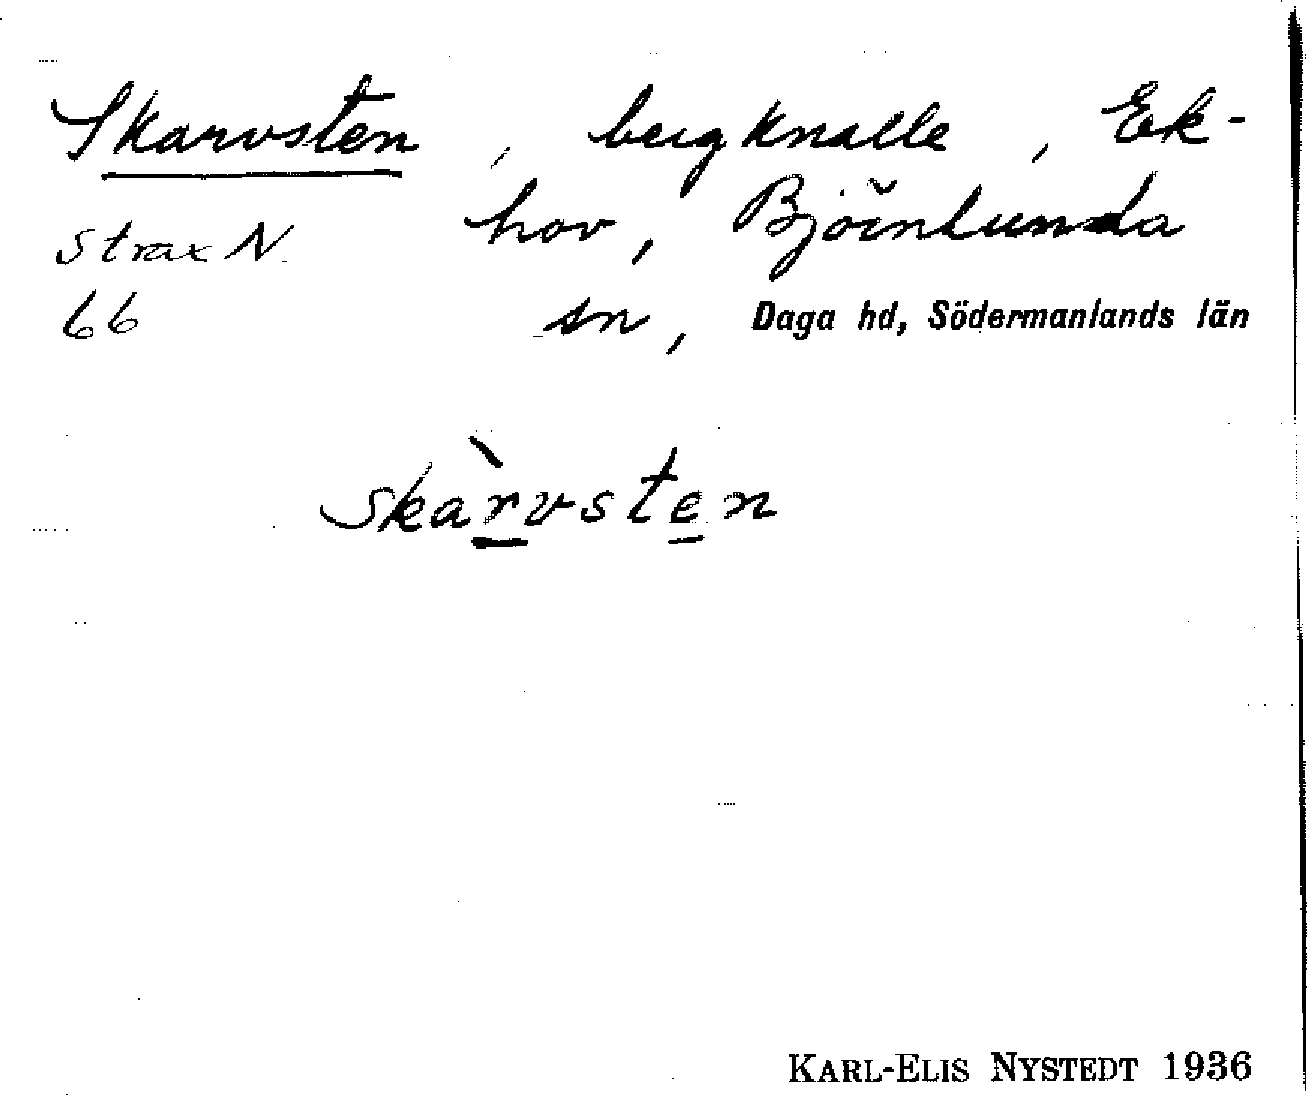 Skarvsten, bergknalle, Ek-
hov, Björnlunda
strax N.
66
sn, Daga hd, Södermanlands län
skàrvsten
KARL-ELIS NYSTEDT 1936